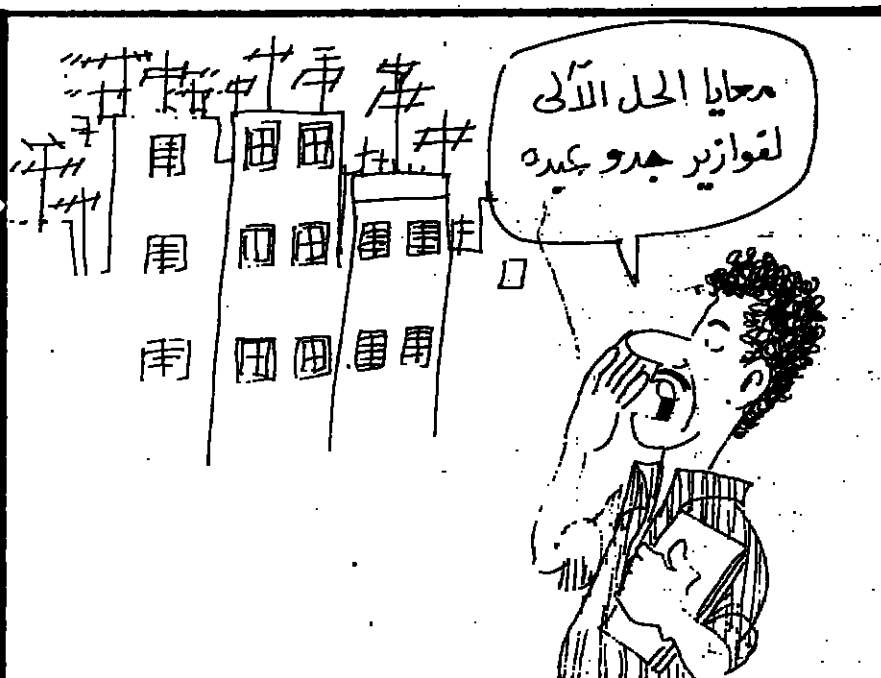 معايا الحل الآلى
لفوازير جدو عبده